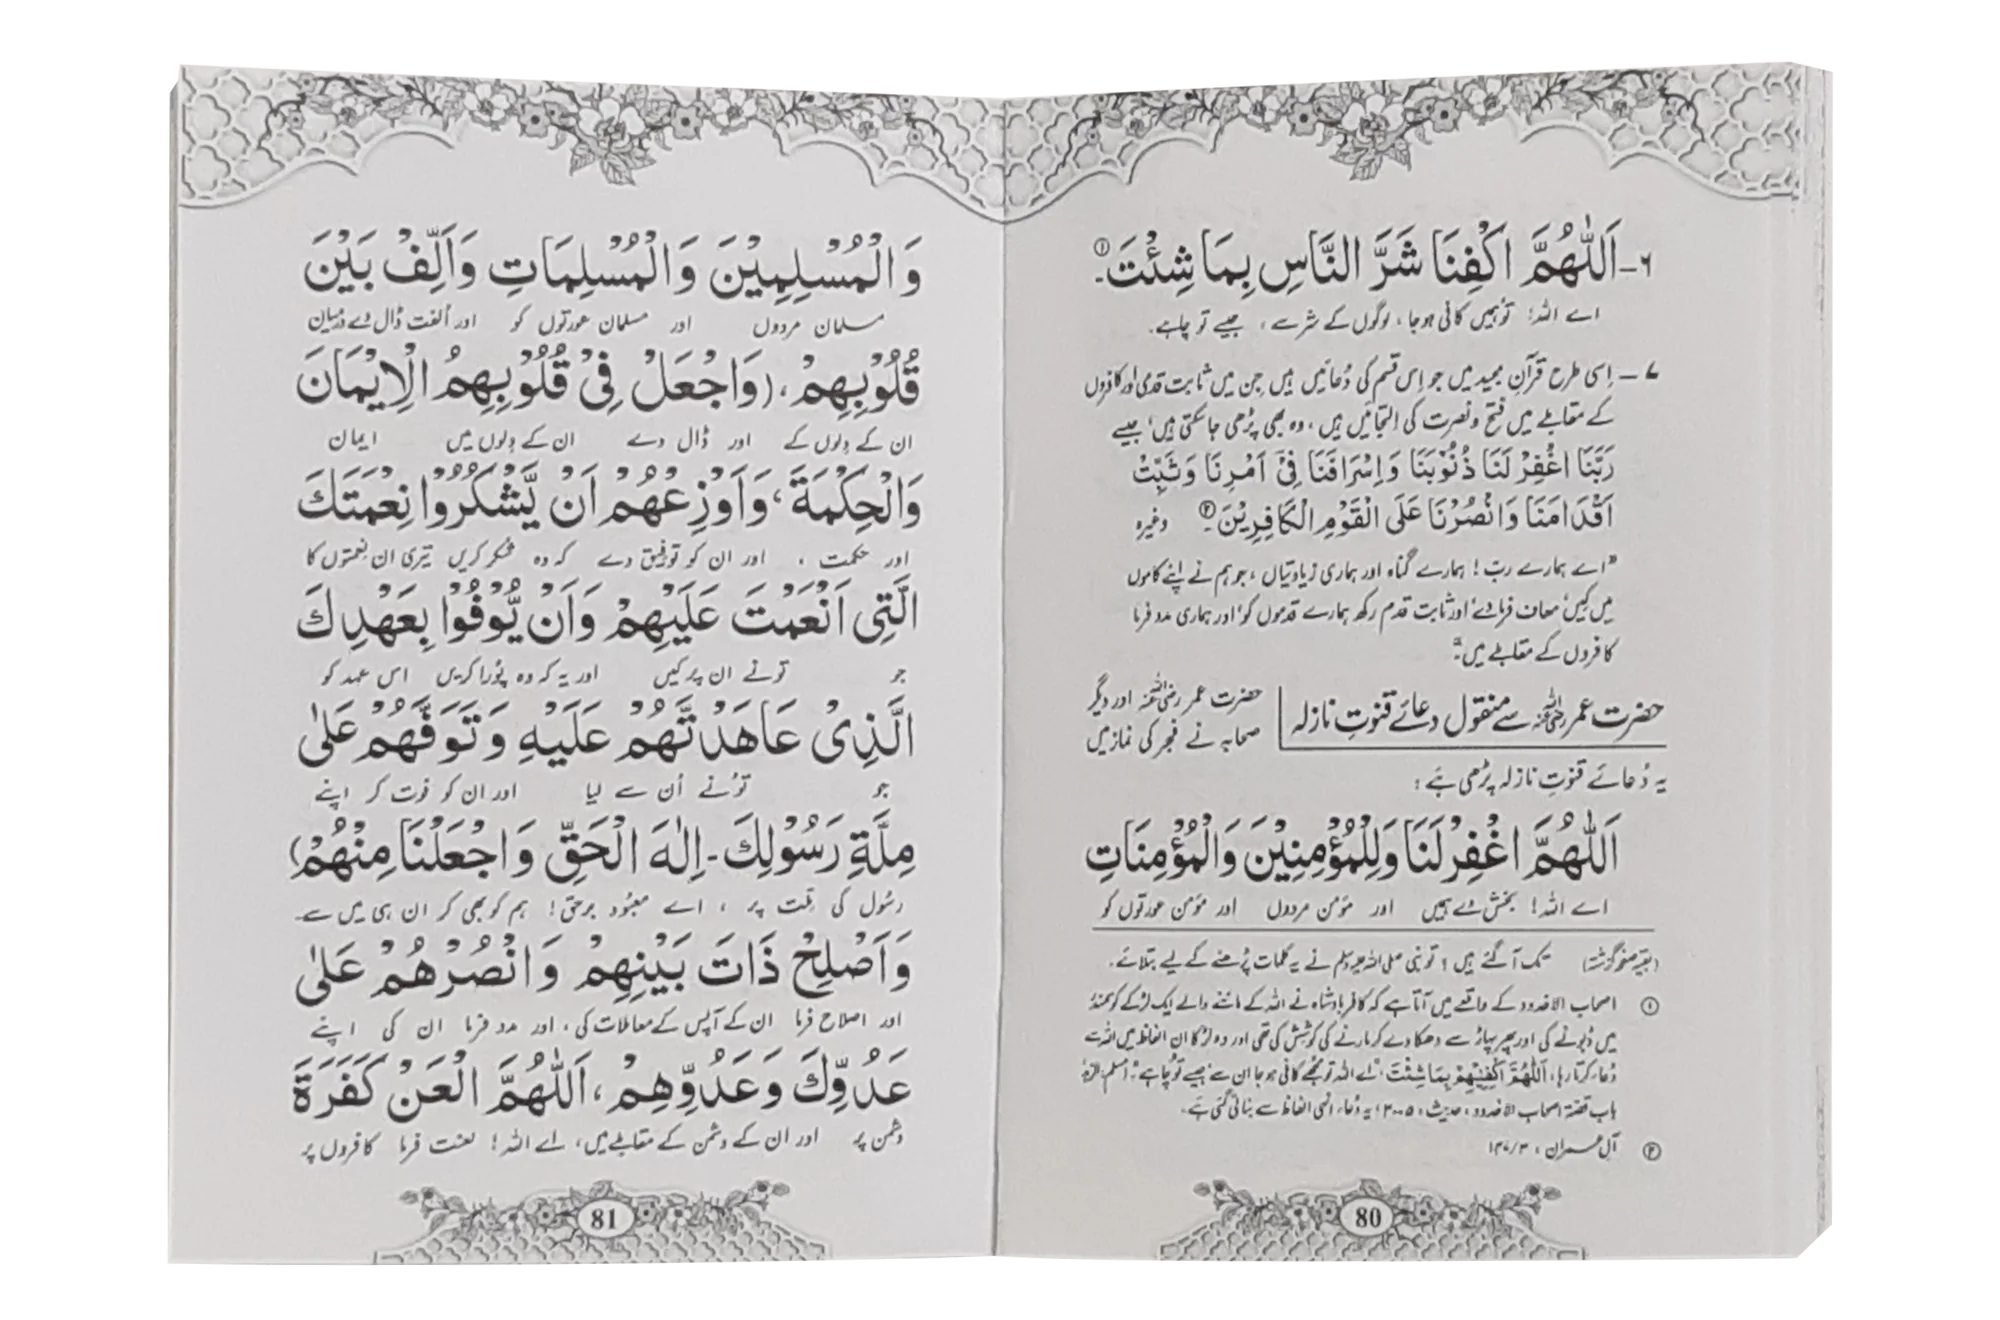 ۶۔ اَللّٰهُمَّ اكْفِنَا شَرَّ النَّاسِ بِمَا شِئْتَ۔ ①
اے اللہ! تو ہمیں کافی ہو جا، لوگوں کے شر سے، جیسے تو چاہے۔
۷۔ اِسی طرح قرآنِ مجید میں جو اِس قسم کی دُعائیں ہیں جن میں ثابت قدمی اور کافروں
کے مقابلے میں فتح و نصرت کی التجائیں ہیں، وہ بھی پڑھی جا سکتی ہیں، جیسے
رَبَّنَا اغْفِرْ لَنَا ذُنُوْبَنَا وَاِسْرَافَنَا فِيْٓ اَمْرِنَا وَثَبِّتْ
اَقْدَامَنَا وَانْصُرْنَا عَلَى الْقَوْمِ الْكَافِرِيْنَ۔ ② وغیرہ
"اے ہمارے ربّ! ہمارے گناہ اور ہماری زیادتیاں، جو ہم نے اپنے کاموں
میں کیں، معاف فرما دے، اور ثابت قدم رکھ ہمارے قدموں کو، اور ہماری مدد فرما
کافروں کے مقابلے میں۔"
حضرت عمر رضی اللہ عنہ سے منقول دعائے قنوتِ نازلہ
حضرت عمر رضی اللہ عنہ اور دیگر
صحابہ نے فجر کی نماز میں
یہ دُعائے قنوتِ نازلہ پڑھی ہے:
اَللّٰهُمَّ اغْفِرْ لَنَا وَلِلْمُؤْمِنِيْنَ وَالْمُؤْمِنَاتِ
اے اللہ! بخش دے ہمیں اور مؤمن مردوں اور مؤمن عورتوں کو
(بقیہ صفحہ گزشتہ) تک آگئے ہیں؟ تو نبی صلی اللہ علیہ وسلم نے یہ کلمات پڑھنے کے لیے بتلائے۔
① اصحاب الاخدود کے واقعے میں آتا ہے کہ کافر بادشاہ نے اللہ کے ماننے والے ایک لڑکے کو سمندر
میں ڈبونے کی اور پھر پہاڑ سے دھکا دے کر مارنے کی کوشش کی تھی اور وہ لڑکا ان الفاظ میں اللہ سے
دُعاء کرتا رہا، اَللّٰهُمَّ اكْفِنِيْهِمْ بِمَا شِئْتَ، "اے اللہ تو مجھے کافی ہو جا ان سے، جیسے تو چاہے"۔ (مسلم، الزہد
باب قصۃ اصحاب الاخدود، حدیث، ۳۰۰۵) یہ دُعاء انہی الفاظ سے بنائی گئی ہے۔
② آل عمران، ۱۴۷/۳
80
وَالْمُسْلِمِيْنَ وَالْمُسْلِمَاتِ وَاَلِّفْ بَيْنَ
مسلمان مردوں اور مسلمان عورتوں کو اور اُلفت ڈال دے درمیان
قُلُوْبِهِمْ، (وَاجْعَلْ فِيْ قُلُوْبِهِمُ الْاِيْمَانَ
ان کے دِلوں کے اور ڈال دے ان کے دِلوں میں ایمان
وَالْحِكْمَةَ، وَاَوْزِعْهُمْ اَنْ يَّشْكُرُوْا نِعْمَتَكَ
اور حکمت، اور ان کو توفیق دے کہ وہ شکر کریں تیری ان نعمتوں کا
الَّتِيْ اَنْعَمْتَ عَلَيْهِمْ وَاَنْ يُّوْفُوْا بِعَهْدِكَ
جو تو نے ان پر کیں اور یہ کہ وہ پُورا کریں اس عہد کو
الَّذِيْ عَاهَدْتَّهُمْ عَلَيْهِ وَتَوَفَّهُمْ عَلٰى
جو تُو نے اُن سے لیا اور ان کو فوت کر اپنے
مِلَّةِ رَسُوْلِكَ۔ اِلٰهَ الْحَقِّ وَاجْعَلْنَا مِنْهُمْ)
رسُول کی مِلّت پر، اے معبُود برحق! ہم کو بھی کر ان ہی میں سے۔
وَاَصْلِحْ ذَاتَ بَيْنِهِمْ وَانْصُرْهُمْ عَلٰى
اور اصلاح فرما ان کے آپس کے معاملات کی، اور مدد فرما ان کی اپنے
عَدُوِّكَ وَعَدُوِّهِمْ، اَللّٰهُمَّ الْعَنْ كَفَرَةَ
دشمن پر اور ان کے دشمن کے مقابلے میں، اے اللہ! لعنت فرما کافروں پر
81